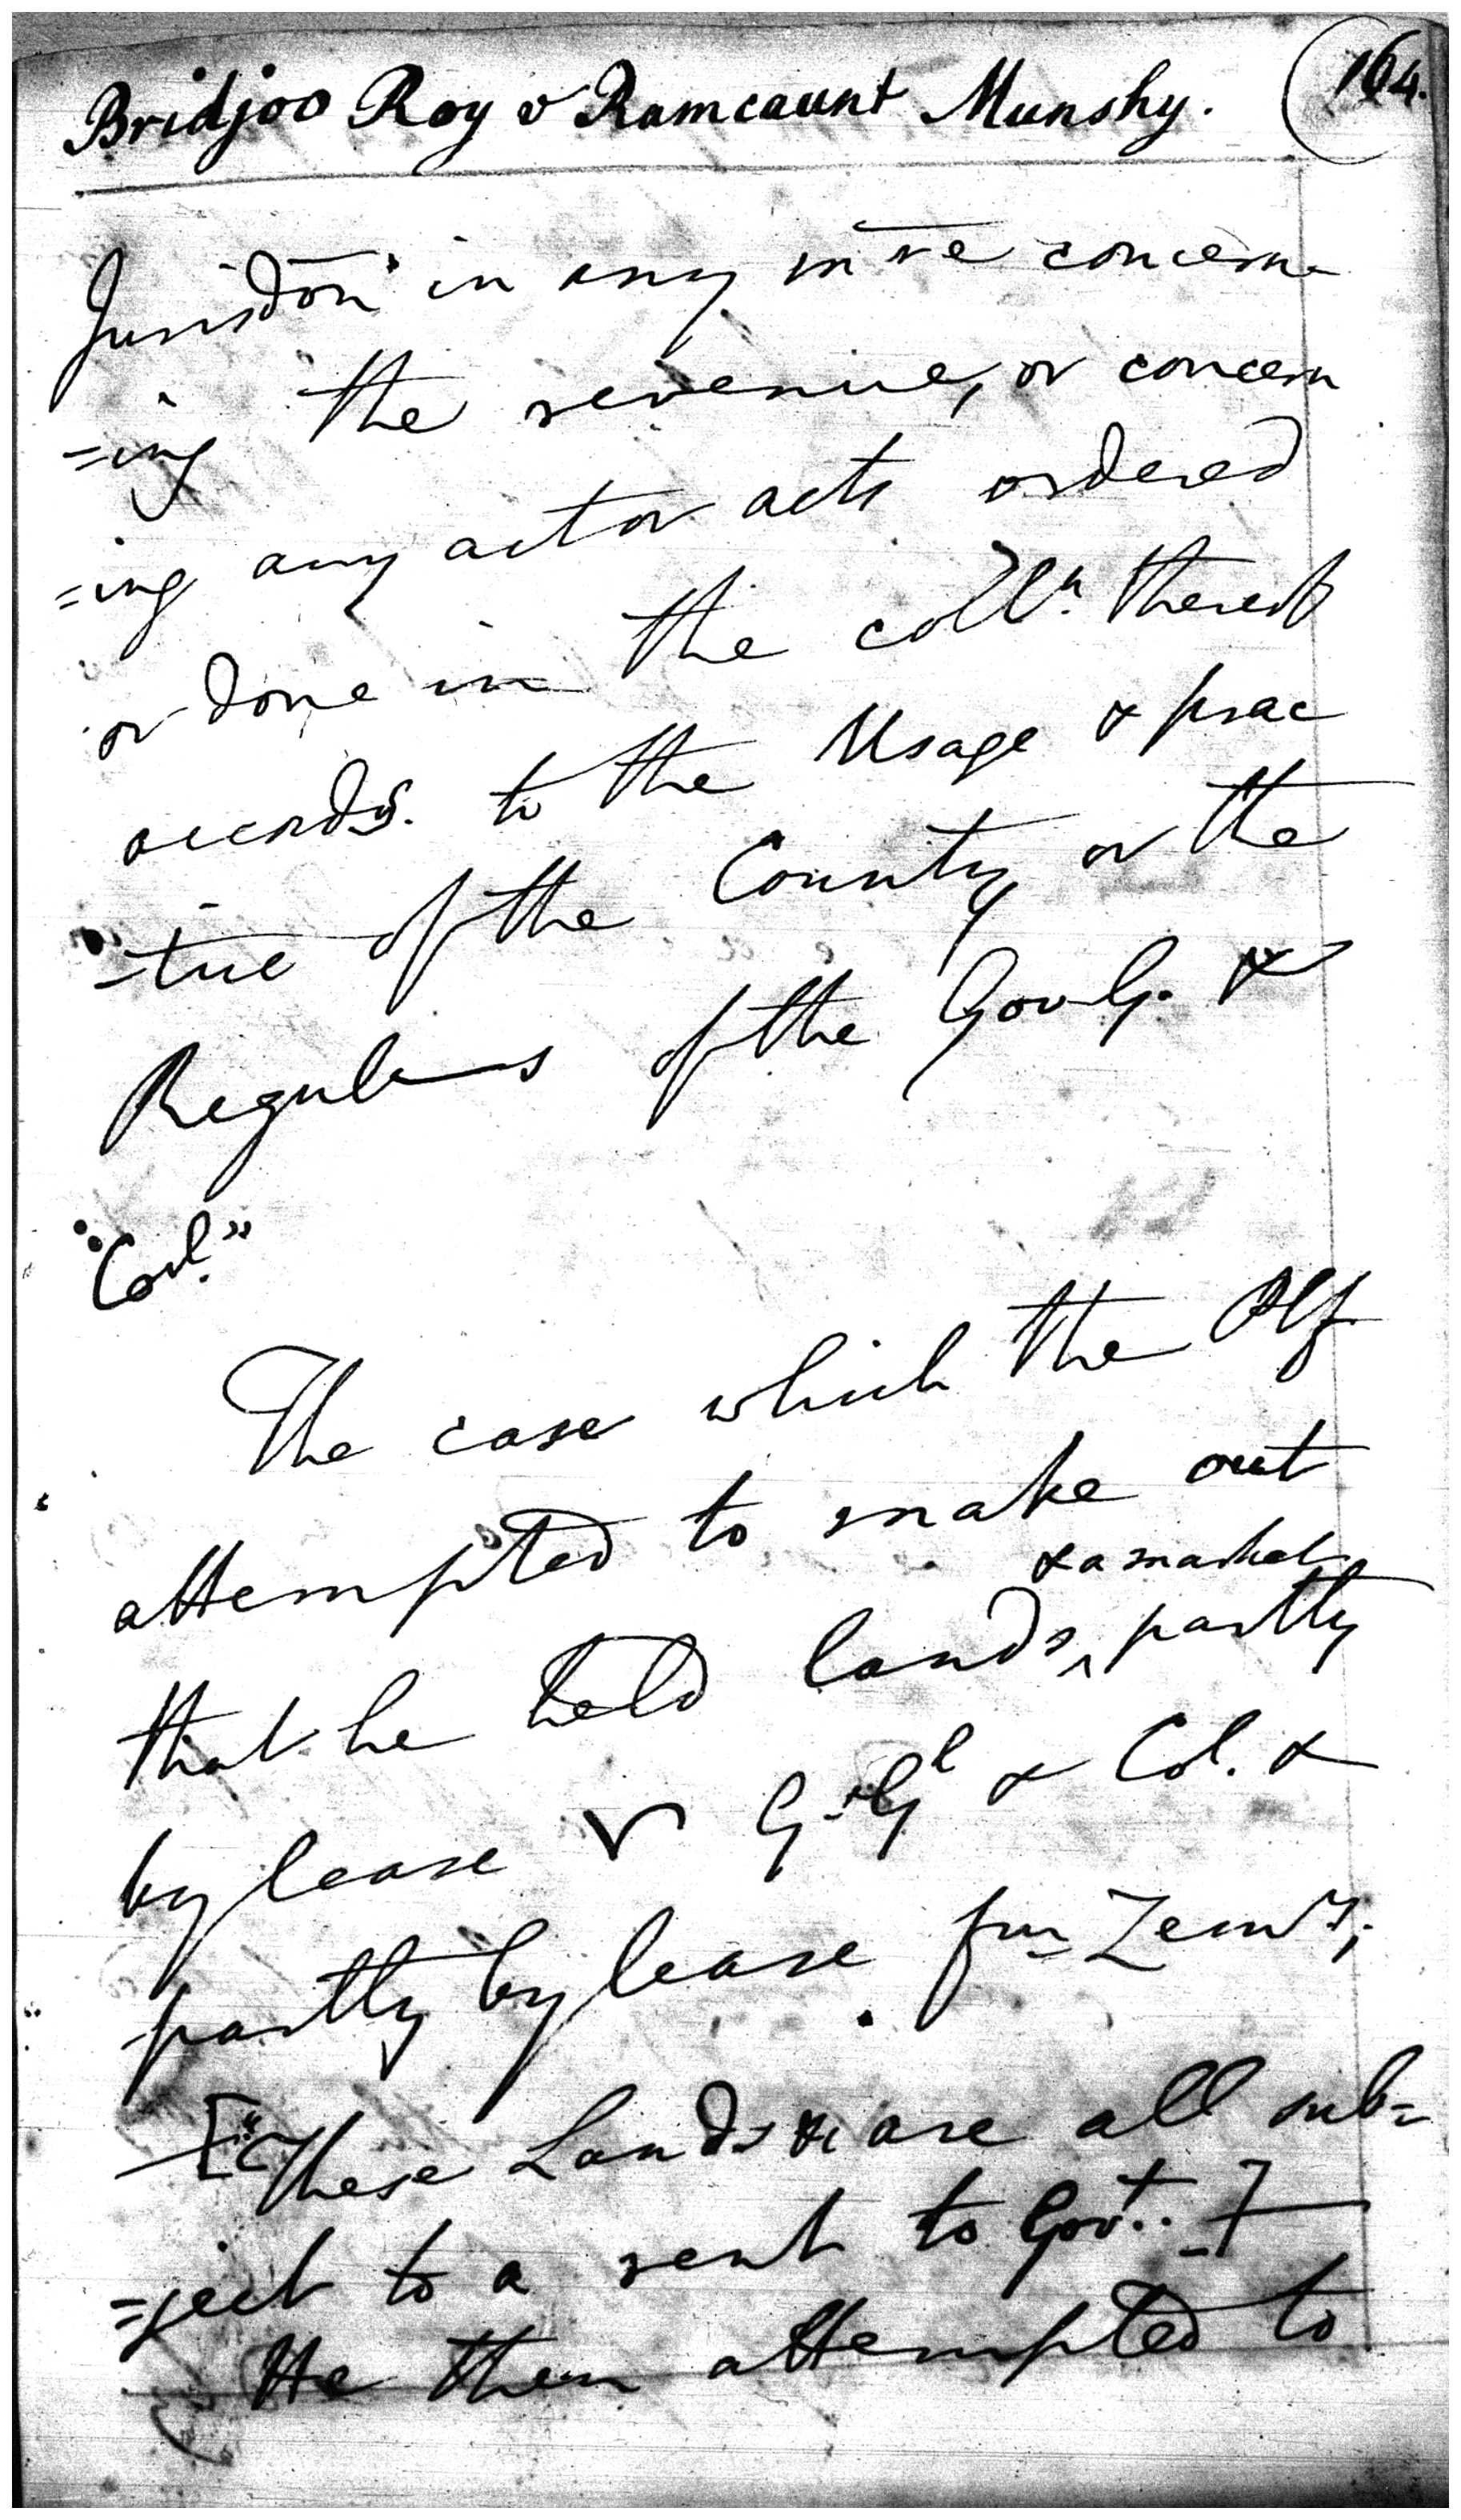 Bridjoo Roy v Ramcaunt Munshy. 164.
Jurisdon in any mre concern
=ing the revenue, or concern
=ing any act or acts ordered
or done in the colln. thereof
accordg. to the Usage & prac
-tice of the County or the
Regulns of the Gov G. &
"Coul."
The case which the Plf
attempted to make out
& a market
that he held lands ^ partly
by lease G. Gl & Col. &
partly by lease fm Zemrs,
["These Lands &c are all sub=
=ject to a rent to Govt. ]
He then attempted to